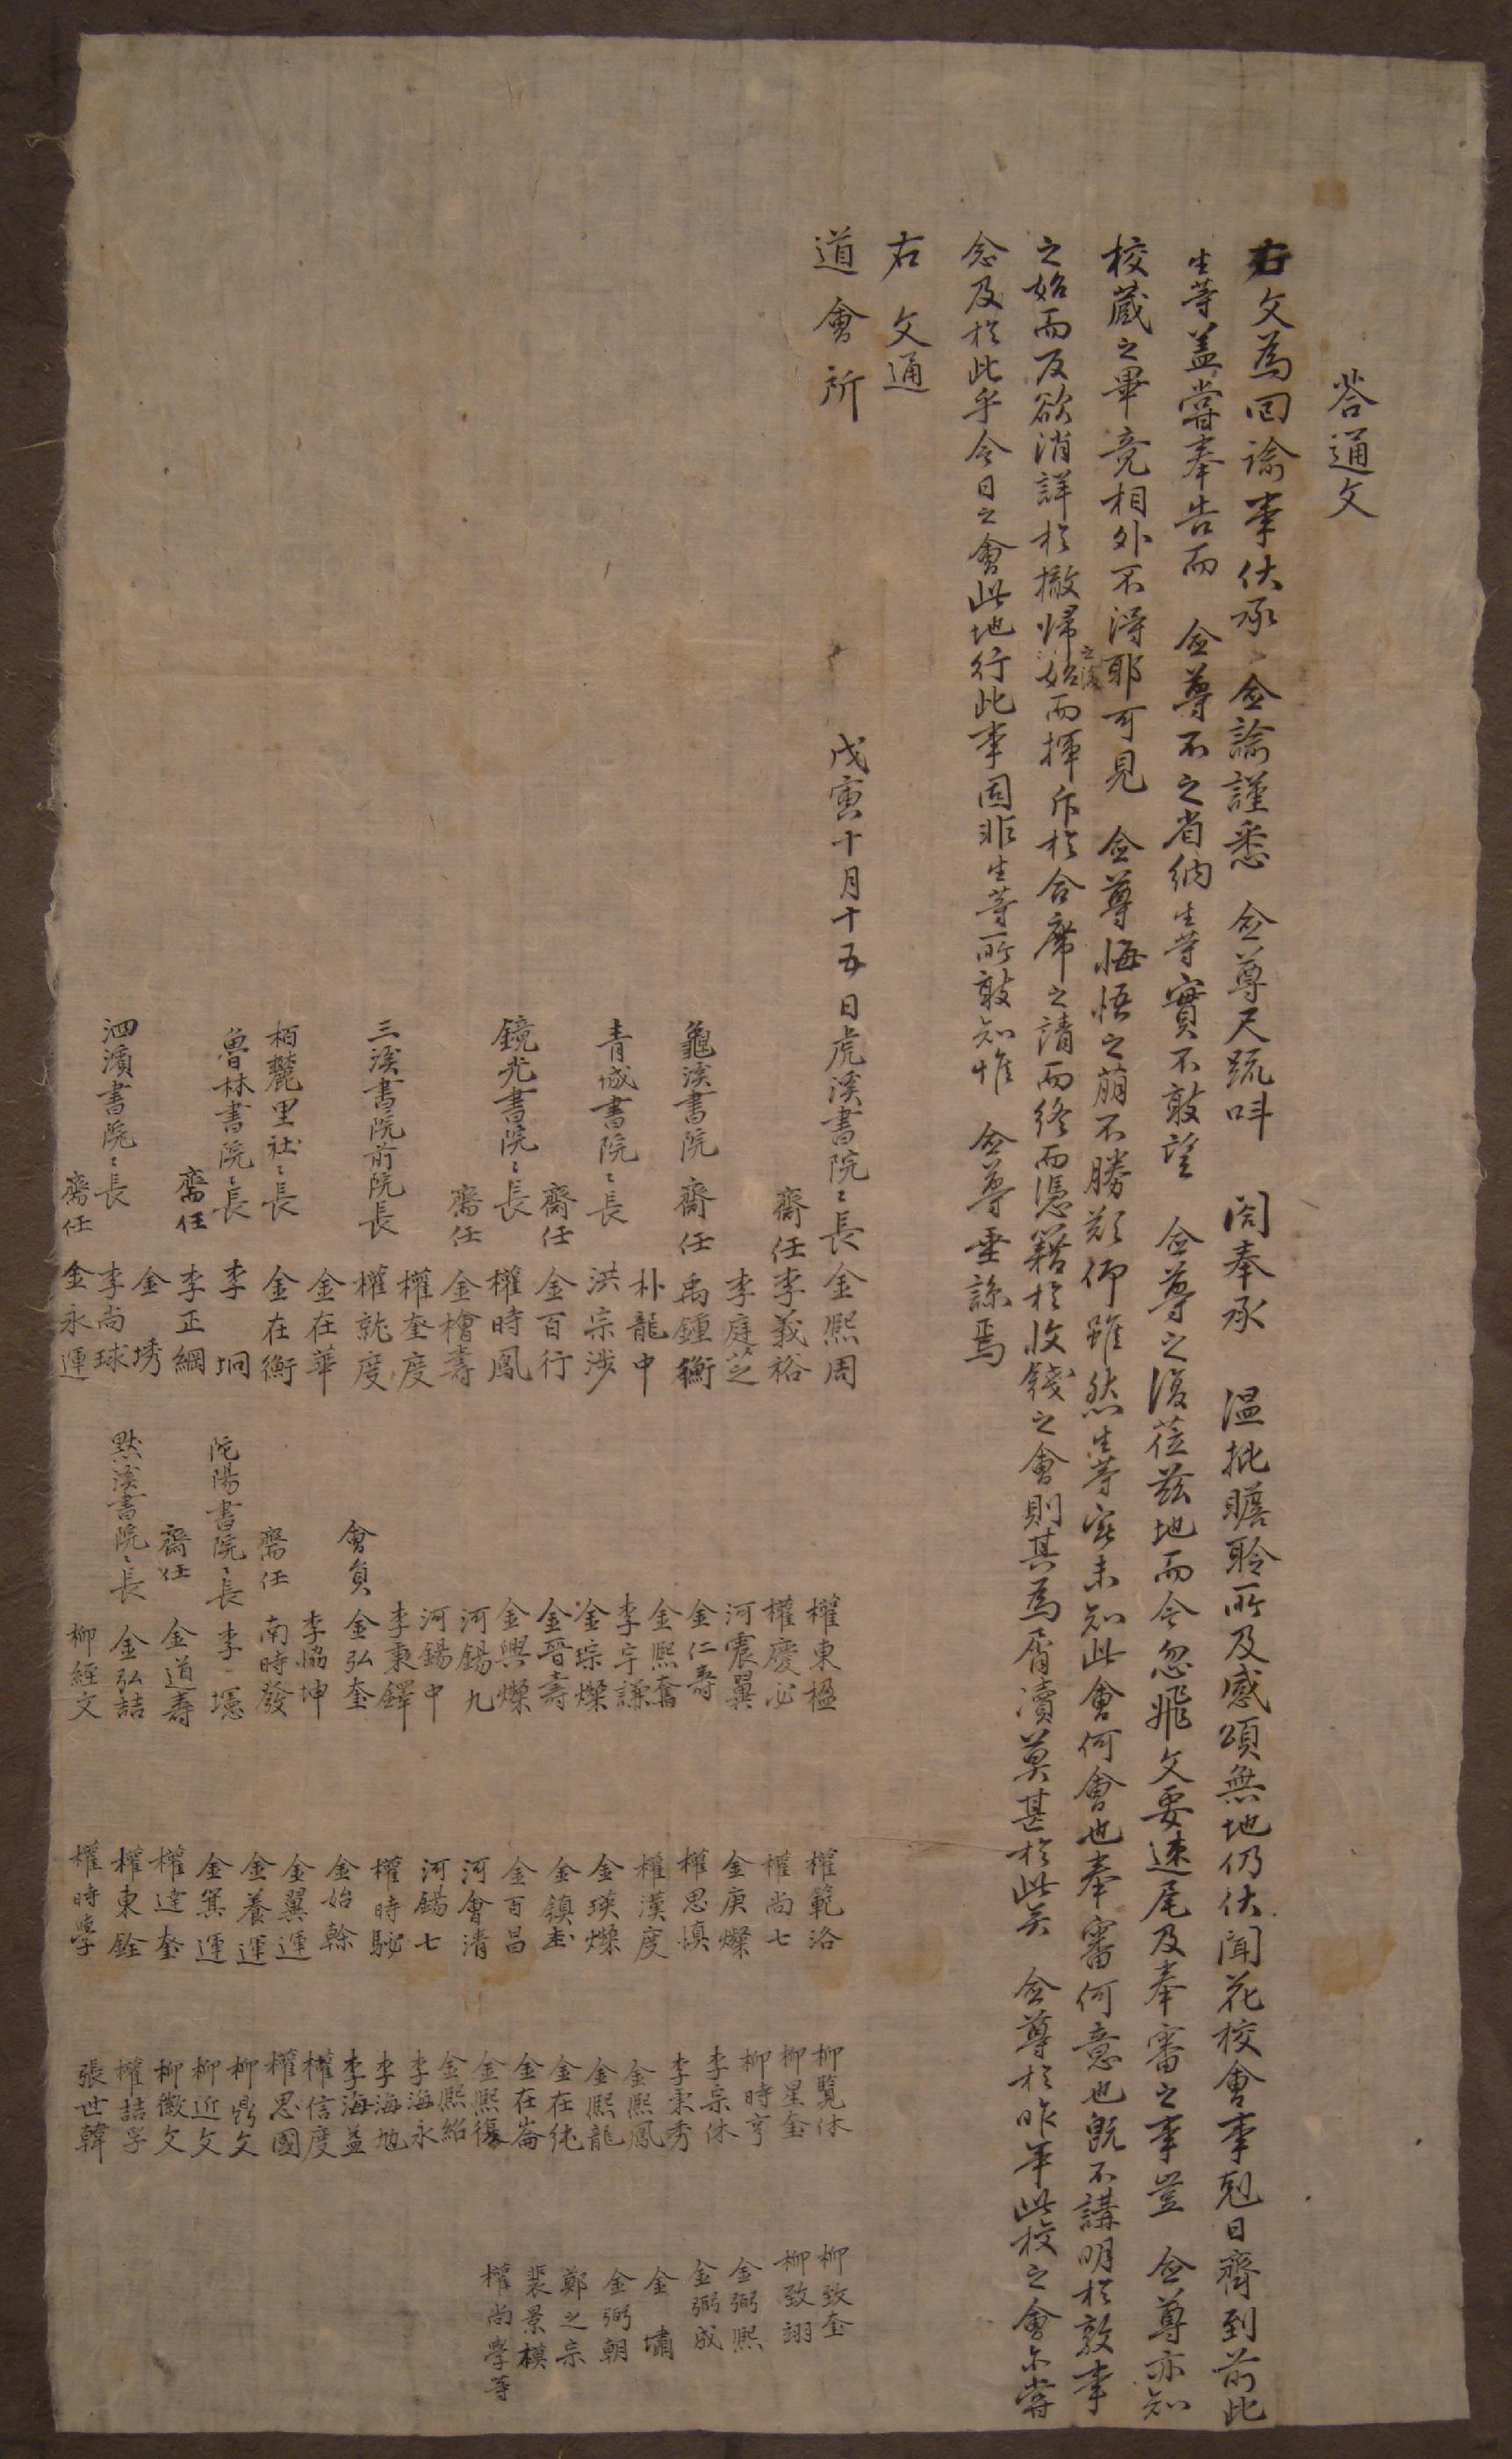 答通文
右文為回諭事伏承 僉諭謹悉 僉尊尺疏呌 閤奉承 溫批瞻聆所及感頌無地仍伏聞花校會事剋日齊到前此
生等盖嘗奉告而 僉尊不之省納生等實不敢望 僉尊之復莅玆地而今忽飛文要速尾及奉審之事豈 僉尊亦知
校蔵之畢竟相外不得耶可見 僉尊悔悟之萠不勝欽仰雖然生等实未知此會何會也奉審何意也旣不講明於敦事
之始而反欲消詳於撤歸之後始而揮斥於合席之請而終而憑藉於收錢之會則其為屑瀆莫甚於此矣 僉尊於昨年此校之會亦嘗
念及於此乎今日之會此地行此事固非生等所敢知惟 僉尊垂諒焉
右文通
道會所
戊寅十月十五日虎溪書院〻長金熙周
齋任李義裕
李庭芝
龜溪書院 齋任禹鍾衡
朴龍中
青城書院〻長洪宗涉
齋任金百行
鏡光書院〻長權時鳳
齋任金檜壽
權奎度
三溪書院前院長權就度
金在華
栢麓里社〻長金在衡
魯林書院〻長李垌
齋任李正綱
金琇
泗濱書院〻長李尚球
齋任金永運
權東楹
權慶必
河震翼
金仁壽
金熙奮
李宇謙
金琮燦
金晉壽
金興燦
河錫九
河錫中
李秉鐸
會負金弘奎
李協坤
齋任南時發
陀陽書院〻長李壝
齋任金道壽
默溪書院〻長金弘喆
柳經文
權範洛
權尚七
金庚燦
權思愼
權漢度
金瑛燦
金鎮圭
金百昌
河會清
河錫七
權時駜
金始榦
金翼運
金養運
金箕運
權達奎
權東銓
權時學
柳覽休
柳星奎
柳時亨
李宗休
李秉秀
金熙鳳
金熙龍
金在純
金在崙
金熙復
金熙紹
李海永
李海地
李海益
權信度
權思國
柳鼎文
柳近文
柳徽文
權喆孚
張世韓
柳致奎
柳致翊
金弼熙
金弼成
金墉
金弼朝
鄭之宗
裴景模
權尚學等